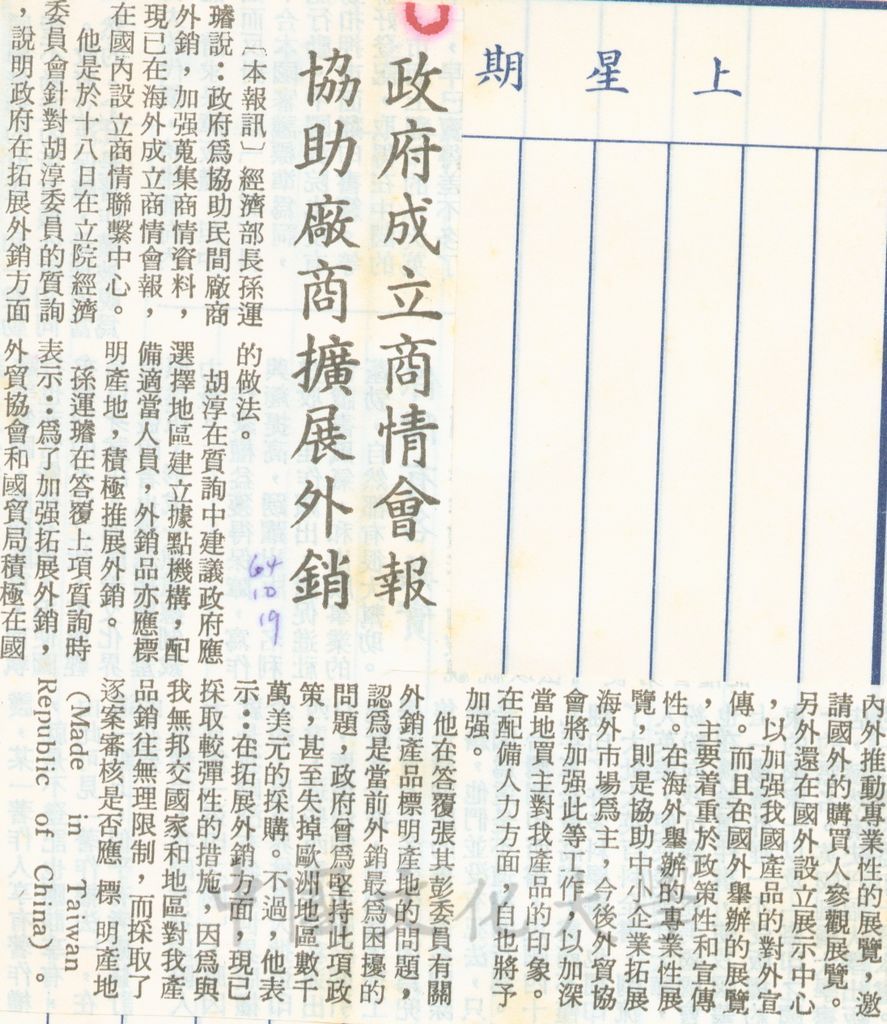 上星期
政府成立商情會報
協助廠商擴展外銷
64
10
19
〔本報訊〕經濟部長孫運
璿說：政府爲協助民間廠商
外銷，加强蒐集商情資料，
現已在海外成立商情會報，
在國內設立商情聯繫中心。
他是於十八日在立院經濟
委員會針對胡淳委員的質詢
，說明政府在拓展外銷方面
的做法。
胡淳在質詢中建議政府應
選擇地區建立據點機構，配
備適當人員，外銷品亦應標
明產地，積極推展外銷。
孫運璿在答覆上項質詢時
表示：爲了加强拓展外銷，
外貿協會和國貿局積極在國
內外推動專業性的展覽，邀
請國外的購買人參觀展覽。
另外還在國外設立展示中心
，以加强我國產品的對外宣
傳。而且在國外舉辦的展覽
，主要着重於政策性和宣傳
性。在海外舉辦的專業性展
覽，則是協助中小企業拓展
海外市場爲主，今後外貿協
會將加强此等工作，以加深
當地買主對我產品的印象。
在配備人力方面，自也將予
加强。
他在答覆張其彭委員有關
外銷產品標明產地的問題，
認爲是當前外銷最爲困擾的
問題，政府曾爲堅持此項政
策，甚至失掉歐洲地區數千
萬美元的採購。不過，他表
示：在拓展外銷方面，現已
採取較彈性的措施，因爲與
我無邦交國家和地區對我產
品銷往無理限制，而採取了
逐案審核是否應標明產地
(Made in Taiwan
Republic of China)。
中國文化大學